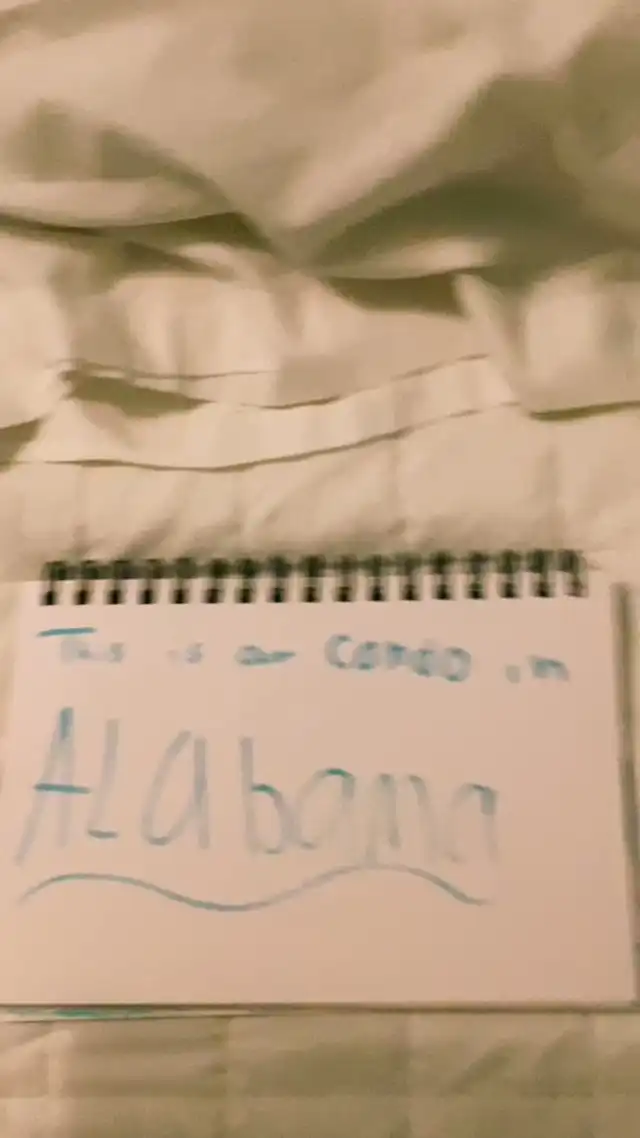 This is our Condo in
ALabama